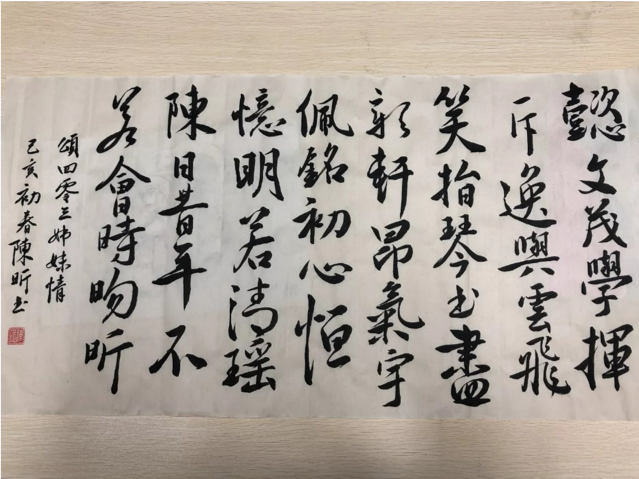 懿文茂學揮
斥逸興雲飛
笑指琴書盡
彰軒昂氣宇
佩銘初心恒
憶明若清瑤
陳日昔年不
若會時昒昕
頌四零三姊妹情
己亥初春陳昕書